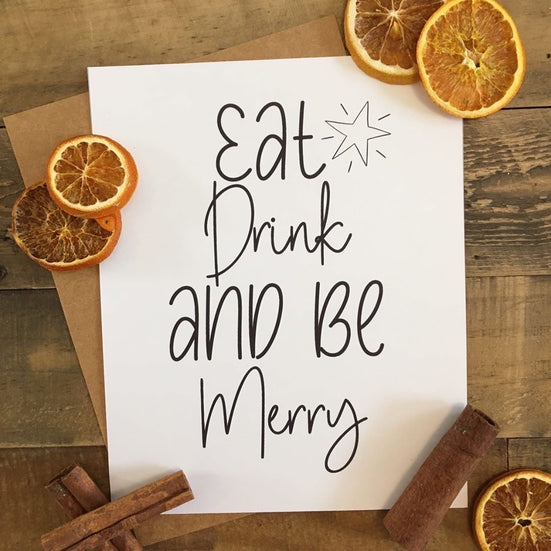 Eat
Drink
AND BE
Merry